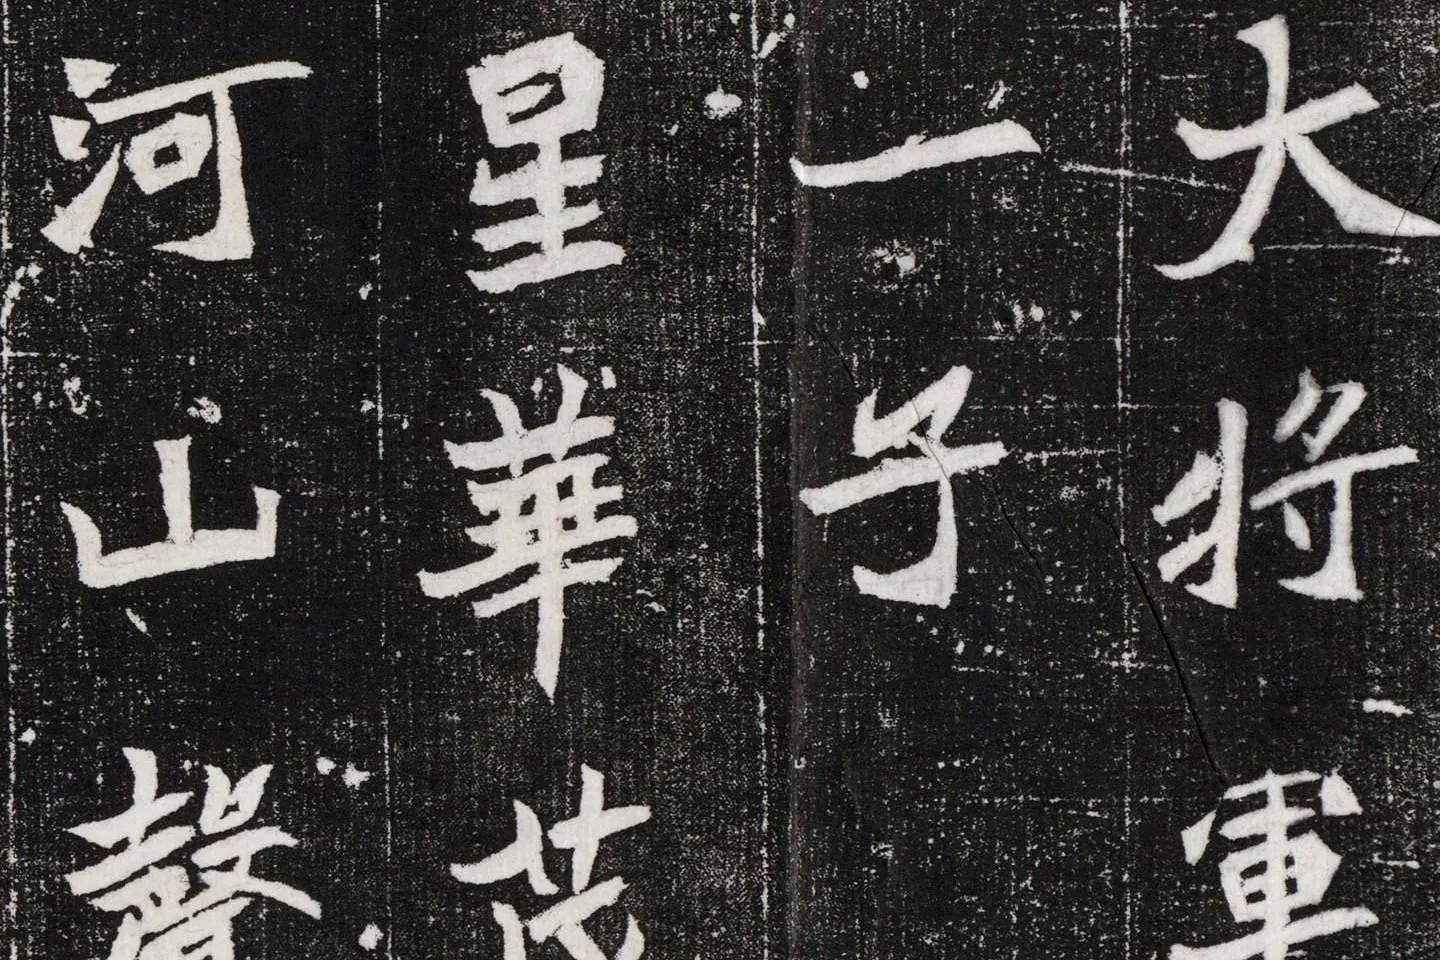 大将軍
一子
星華茂
河山聲